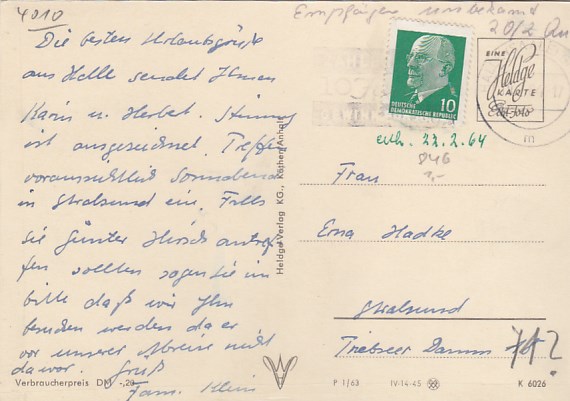 4010
Empfänger unbekannt
20/2
Die besten Urlaubsgrüße
aus Halle sendet Ihnen
Karin u. Herbert. Stimmung
ist ausgezeichnet. Treffen
voraussichtlich Sonnabend
in Stralsund ein. Falls
Sie Günter Hirsch antref-
fen sollten sagen Sie ihm
bitte daß wir ihn
besuchen werden da er
vor unserer Abreise nicht
da war. Gruß
Fam. Klein
Verbraucherpreis DM -,20
Heldge-Verlag KG., Köthen/Anhalt
DEUTSCHE
DEMOKRATISCHE REPUBLIK
10
EINE
Heldge
KARTE
Echt Foto
erh. 22.2.64
Frau
Erna Hadke
Stralsund
Triebseer Damm
P 1/63 IV-14-45 K 6026